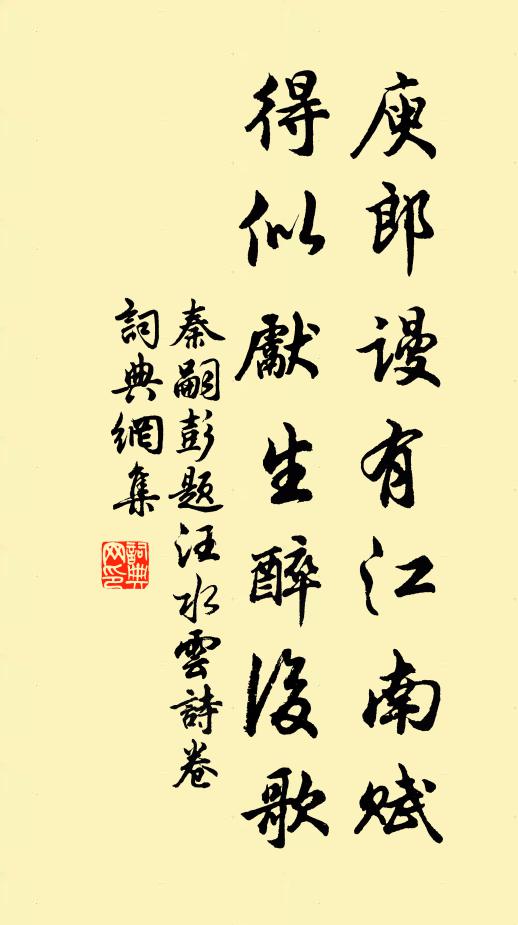 庾郎謾有江南赋
得似獻生醉後歌
秦嗣彭題汪水雲詩卷
詞典網集
詞典
网印